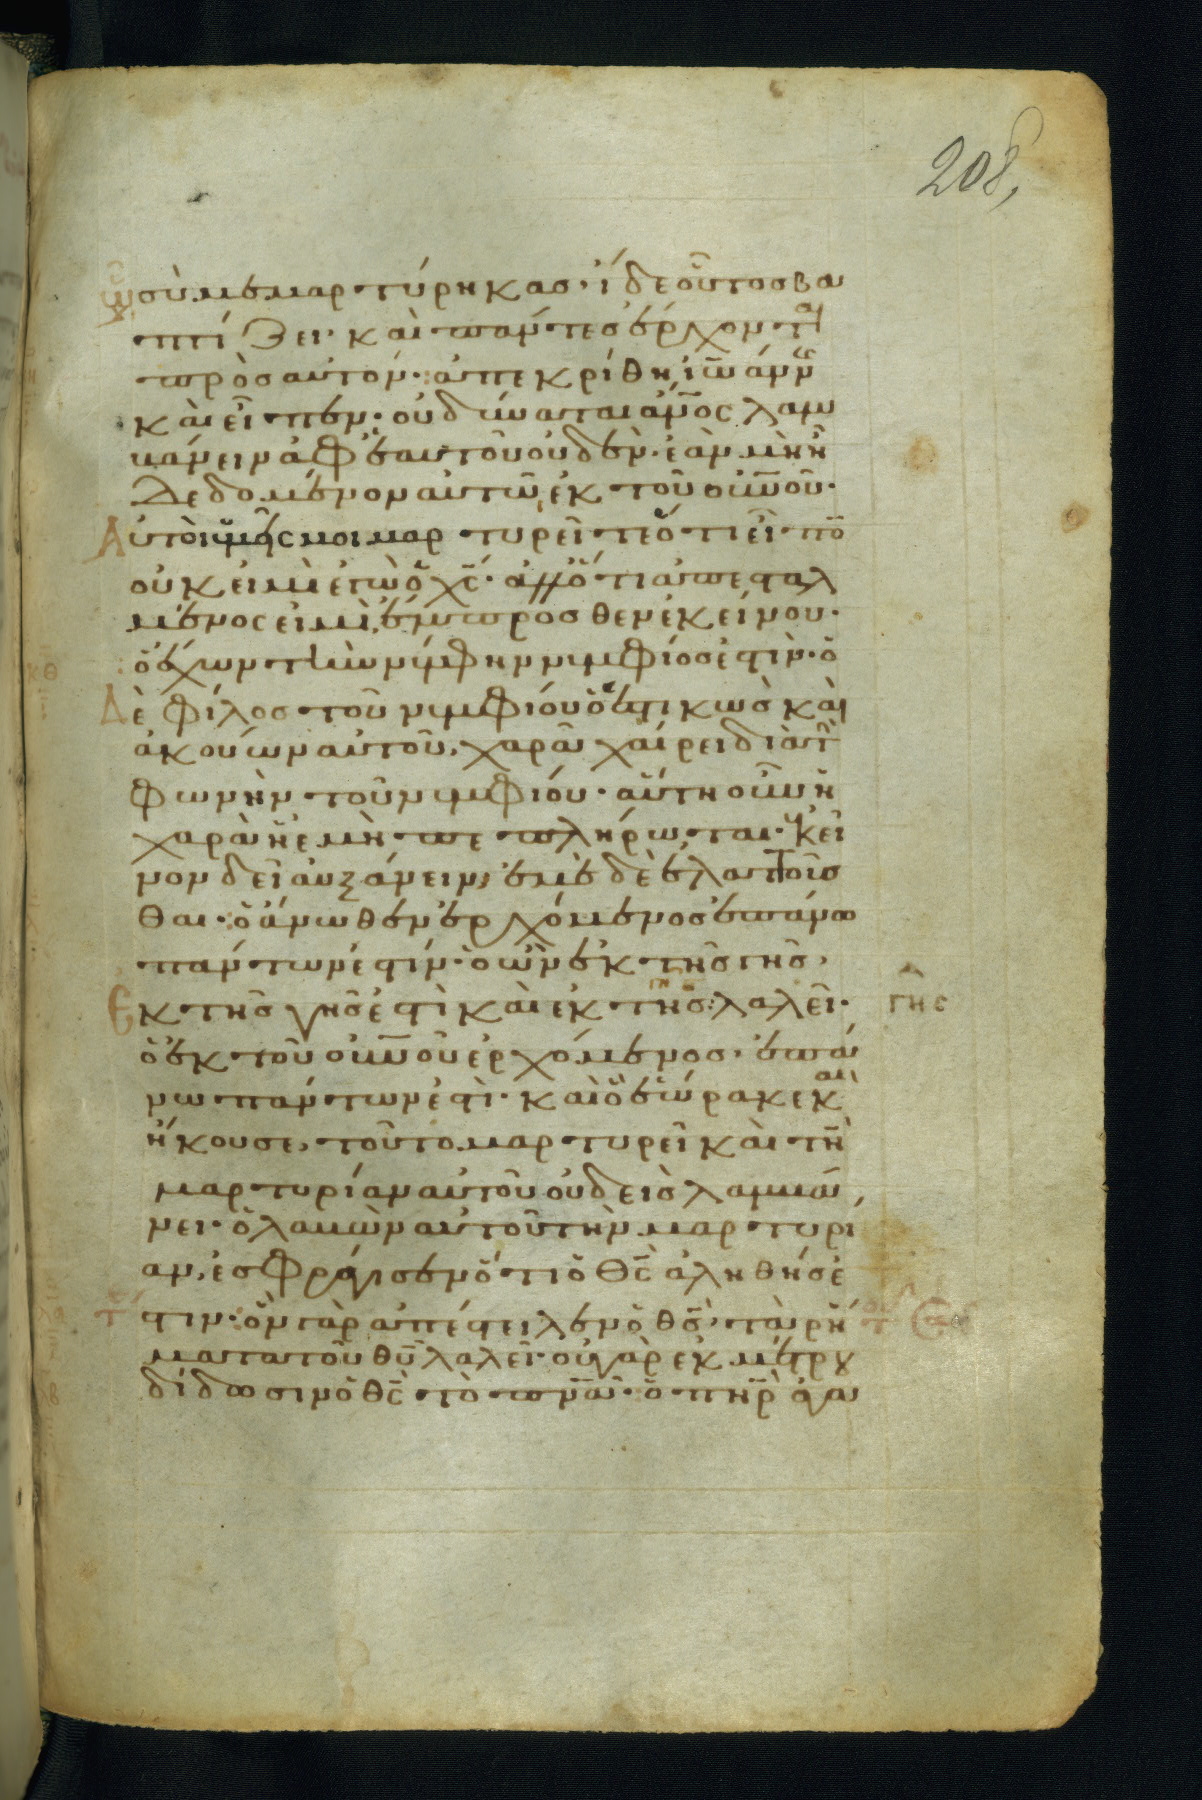 208,
ᾧ σὺ μεμαρτύρηκας· ἴδε οὗτος βα
πτίζει· καὶ πάντες ἔρχονται
πρὸς αὐτόν· ἀπεκρίθη ἰωάννης
καὶ εἶπεν· οὐ δύναται ἄνος λαμ
βάνειν ἀφ' ἑαυτοῦ οὐδὲν· ἐὰν μὴ ἦ
δεδομένον αὐτῶ ἐκ τοῦ οὐνοῦ·
Αὐτοὶ ὑμεῖς μοι μαρτυρεῖτε ὅτι εἶπον
οὐκ εἰμὶ ἐγὼ ὁ χς· ἀλλ' ὅτι ἀπεσταλ
μένος εἰμὶ ἔμπροσθεν ἐκείνου·
κθ ὁ ἔχων τὴν νύμφην νυμφίος ἐστὶν· ὁ
Δὲ φίλος τοῦ νυμφίου ὁ ἑστικὼς καὶ
ἀκούων αὐτοῦ, χαρᾶ χαίρει διὰ τὴν
φωνὴν τοῦ νυμφίου· αὕτη οὖν ἡ
χαρὰ ἡ ἐμὴ πεπλήρωται· ἐκεῖ
νον δεῖ αὐξάνειν, ἐμὲ δὲ ἐλαττοῦσ
θαι· ὁ ἄνωθεν ἐρχόμενος ἐπάνω
πάντων ἐστίν· ὁ ὢν ἐκ τῆς γῆς,
Ἐκ τῆς γῆς ἐστὶ καὶ ἐκ τῆς λαλεῖ· γῆς
ὁ ἐκ τοῦ οὐνοῦ ἐρχόμενος, ἐπά
νω πάντων ἐστὶ· καὶ ὃ ἑώρακε καὶ
ἤκουσε, τοῦτο μαρτυρεῖ καὶ τὴν
μαρτυρίαν αὐτοῦ οὐδεὶς λαμβά
νει· ὁ λαβὼν αὐτοῦ τὴν μαρτυρί
αν, ἐσφράγισεν ὅτι ὁ θς ἀληθής ἐ
στιν· ὃν γὰρ ἀπέστειλεν ὁ θς, τὰ ῥή
ματα τοῦ θυ λαλεῖ· οὐ γὰρ ἐκ μέτρου
δίδωσιν ὁ θς τὸ πνα· ὁ πηρ ἀγα